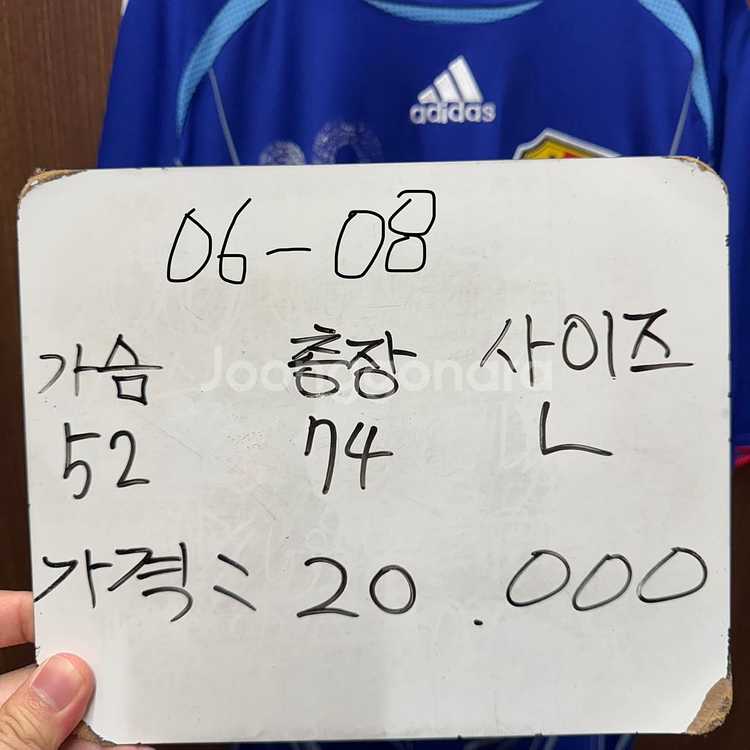 adidas
06-08
가슴 총장 사이즈
Joonggonara
52 74 L
가격: 20.000